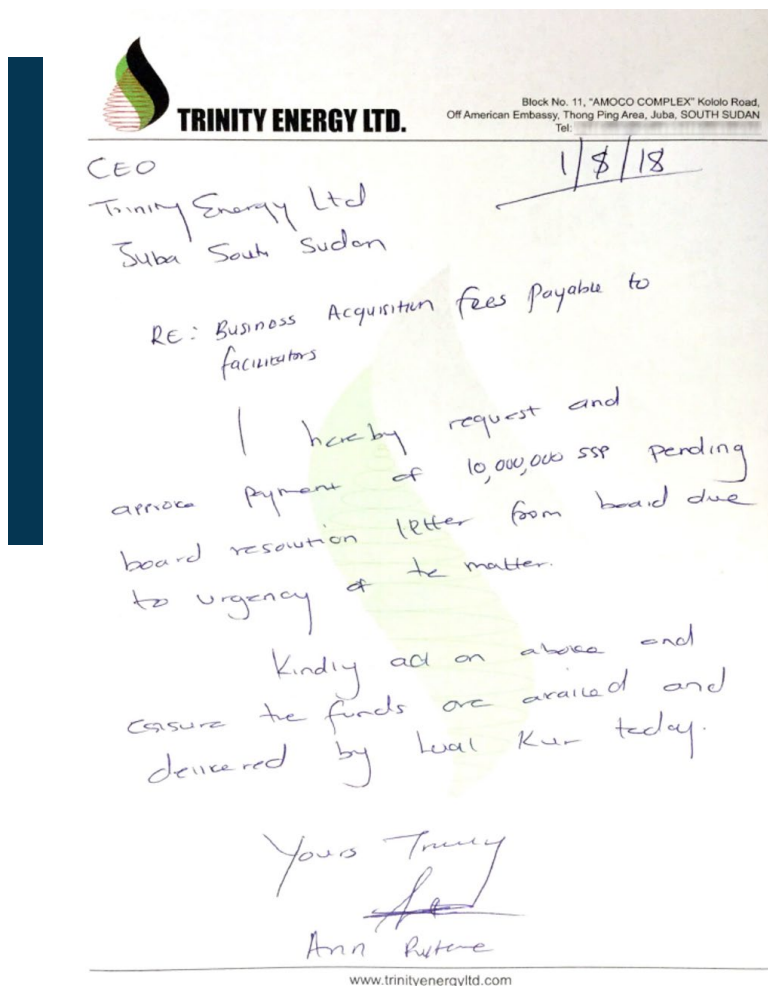 TRINITY ENERGY LTD.
Block No. 11, "AMOCO COMPLEX" Kololo Road,
Off American Embassy, Thong Ping Area, Juba, SOUTH SUDAN
Tel:
1/8/18
CEO
Trinity Energy Ltd
Juba South Sudan
RE: Business Acquisition fees payable to
facilitators
I hereby request and
approve payment of 10,000,000 SSP pending
board resolution letter from board due
to urgency of the matter.
Kindly act on above and
ensure the funds are availed and
delivered by Lual Kur today.
Yours Truly
Ann
www.trinityenergyltd.com